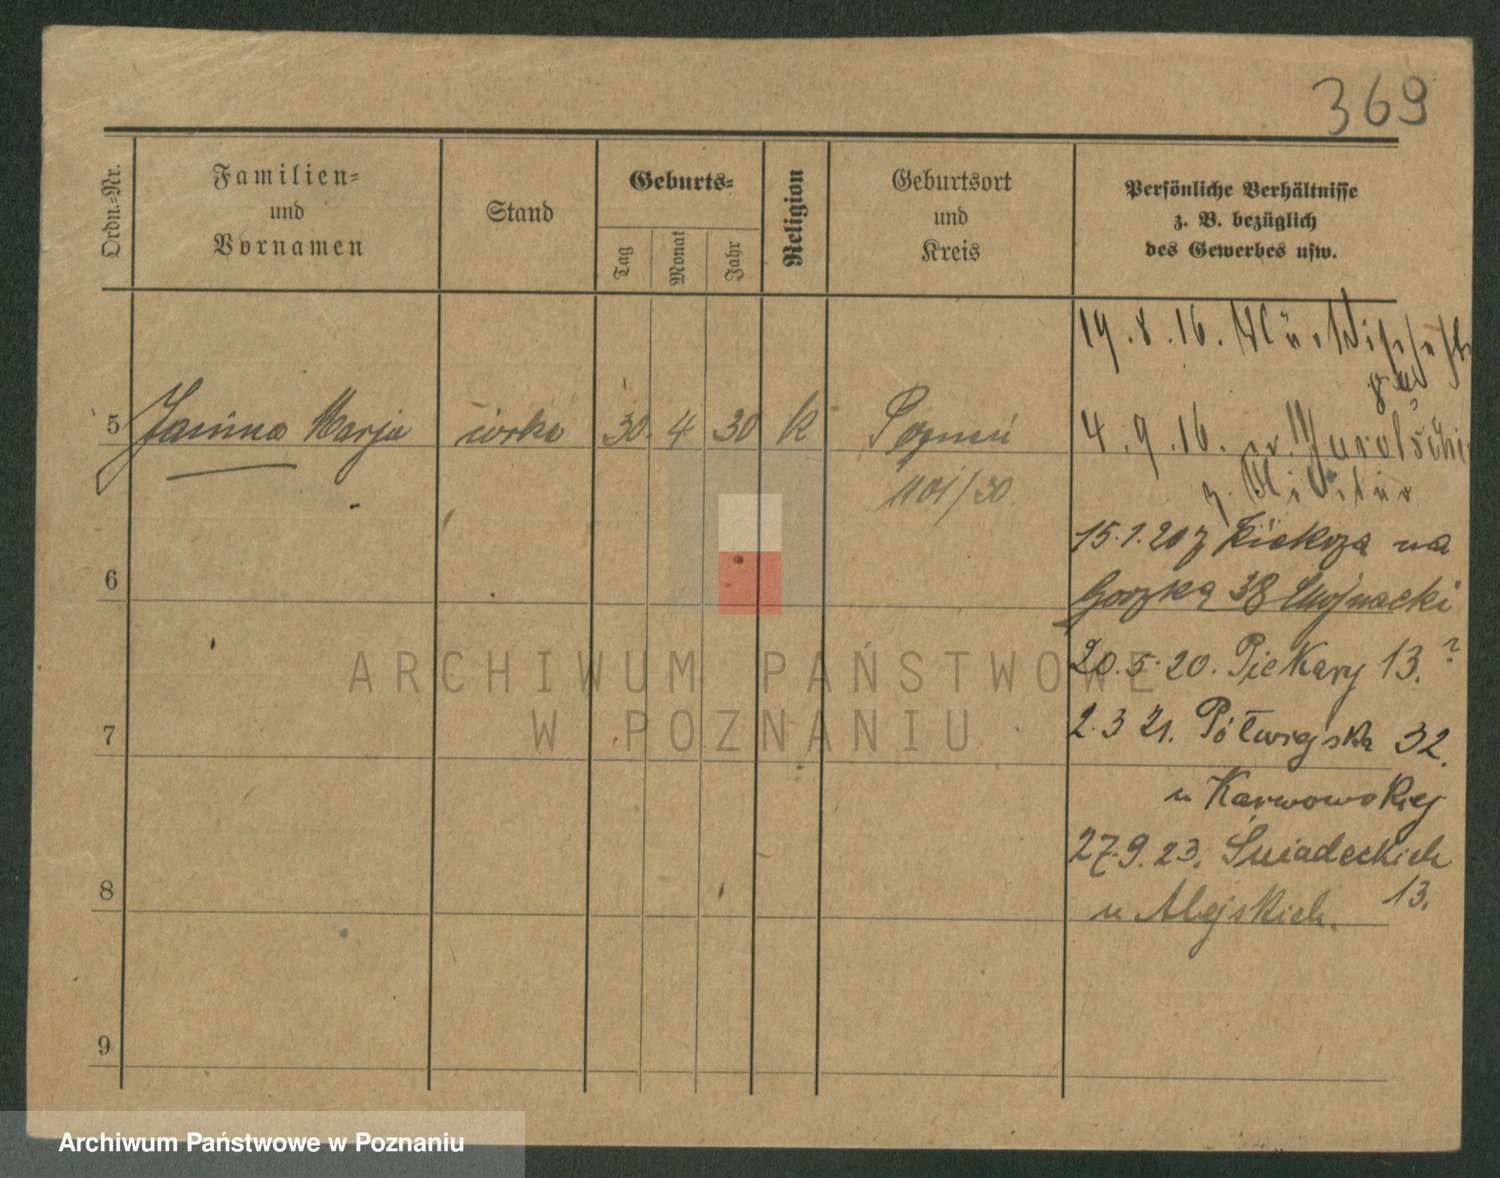 369
Ordn.-Nr.
Familien-
und
Vornamen
Stand
Geburts-
Tag
Monat
Jahr
Religion
Geburtsort
und
Kreis
Persönliche Verhältnisse
z. B. bezüglich
des Gewerbes usw.
19.8.16.
5 Janina Marja córka 30. 4 30 k Poznań
1101/30.
4.9.16.
15.1.20 z Kiekrza na
6
Gorzka 38
20.5.20. Piekary 13.?
7
2.3 21. Półwiejska 32.
u Karwowskiej
27.9.23. Śniadeckich
13.
8
u Alejskich.
9
ARCHIWUM PAŃSTWOWE
W POZNANIU
Archiwum Państwowe w Poznaniu